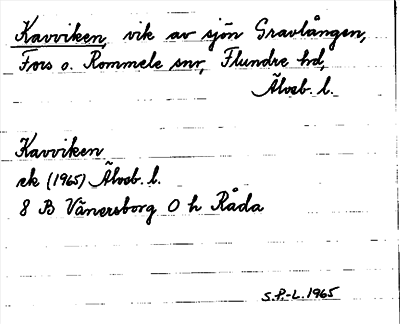 Kavviken, vik av sjön Gravlången,
Fors o. Rommele snr, Flundre hd,
Älvsb. l.
Kavviken
ek (1965) Älvsb. l.
8 B Vänersborg O h Råda
S.P.-L. 1965